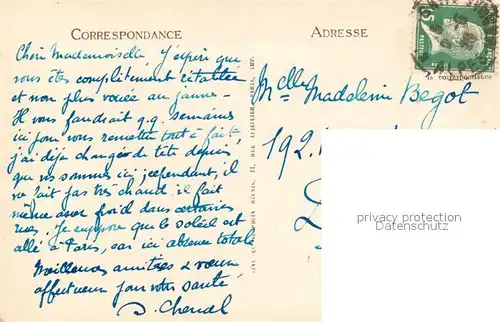 CORRESPONDANCE
ADRESSE
Chère Mademoiselle, j'espère que
vous êtes complètement rétablie
et non plus vouée au jaune-
Il vous faudrait q.q. semaines
ici pour vous remettre tout à fait,
j'ai déjà changée de tête depuis
que nous sommes ici, cependant, il
ne fait pas très chaud, il fait
même assez froid dans certaines
rues. Je suppose que le soleil est
allé à Paris, car ici absence totale
Meilleures amitiés & vœux
affectueux pour votre santé
D. Chenal
Melle Madeleine Begot
192
la correspondance
privacy protection
Datenschutz